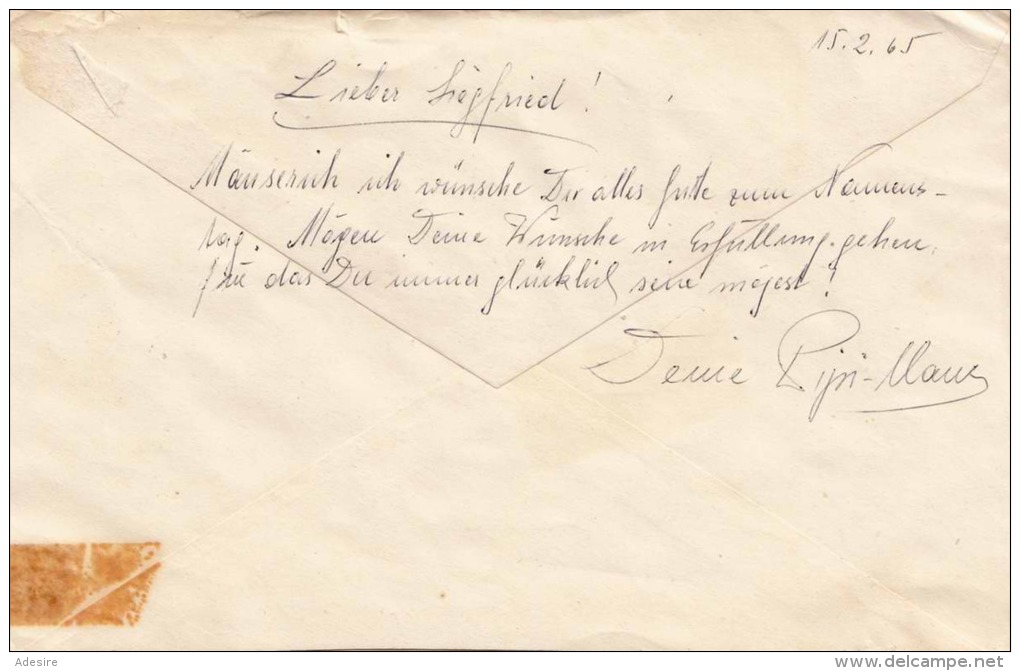 15.2.65
Lieber Siegfried!
Mäuserich ich wünsche Dir alles Gute zum Namens-
tag. Mögen Deine Wünsche in Erfüllung gehen,
das Du immer glücklich sein mögest!
Deine Pipi-Maus
Adesire
www.delcampe.net